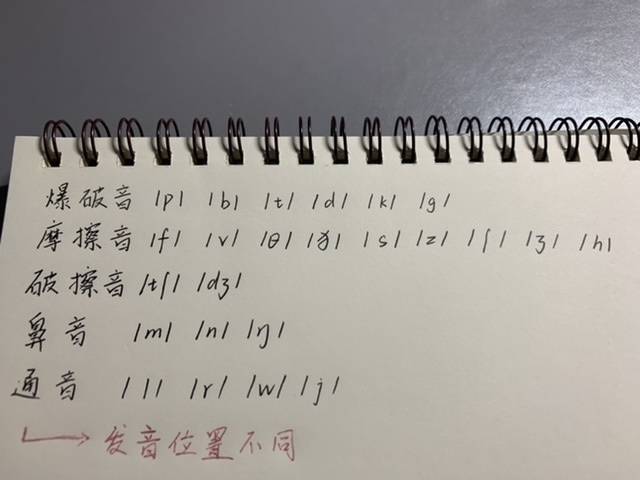 爆破音 /p/ /b/ /t/ /d/ /k/ /g/
摩擦音 /f/ /v/ /θ/ /ð/ /s/ /z/ /ʃ/ /ʒ/ /h/
破擦音 /tʃ/ /dʒ/
鼻音 /m/ /n/ /ŋ/
通音 /l/ /r/ /w/ /j/
→ 发音位置不同